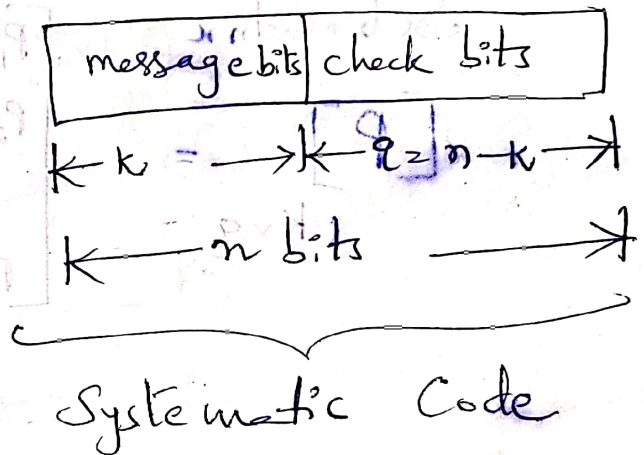 message bits check bits
k q = n-k
n bits
Systematic Code